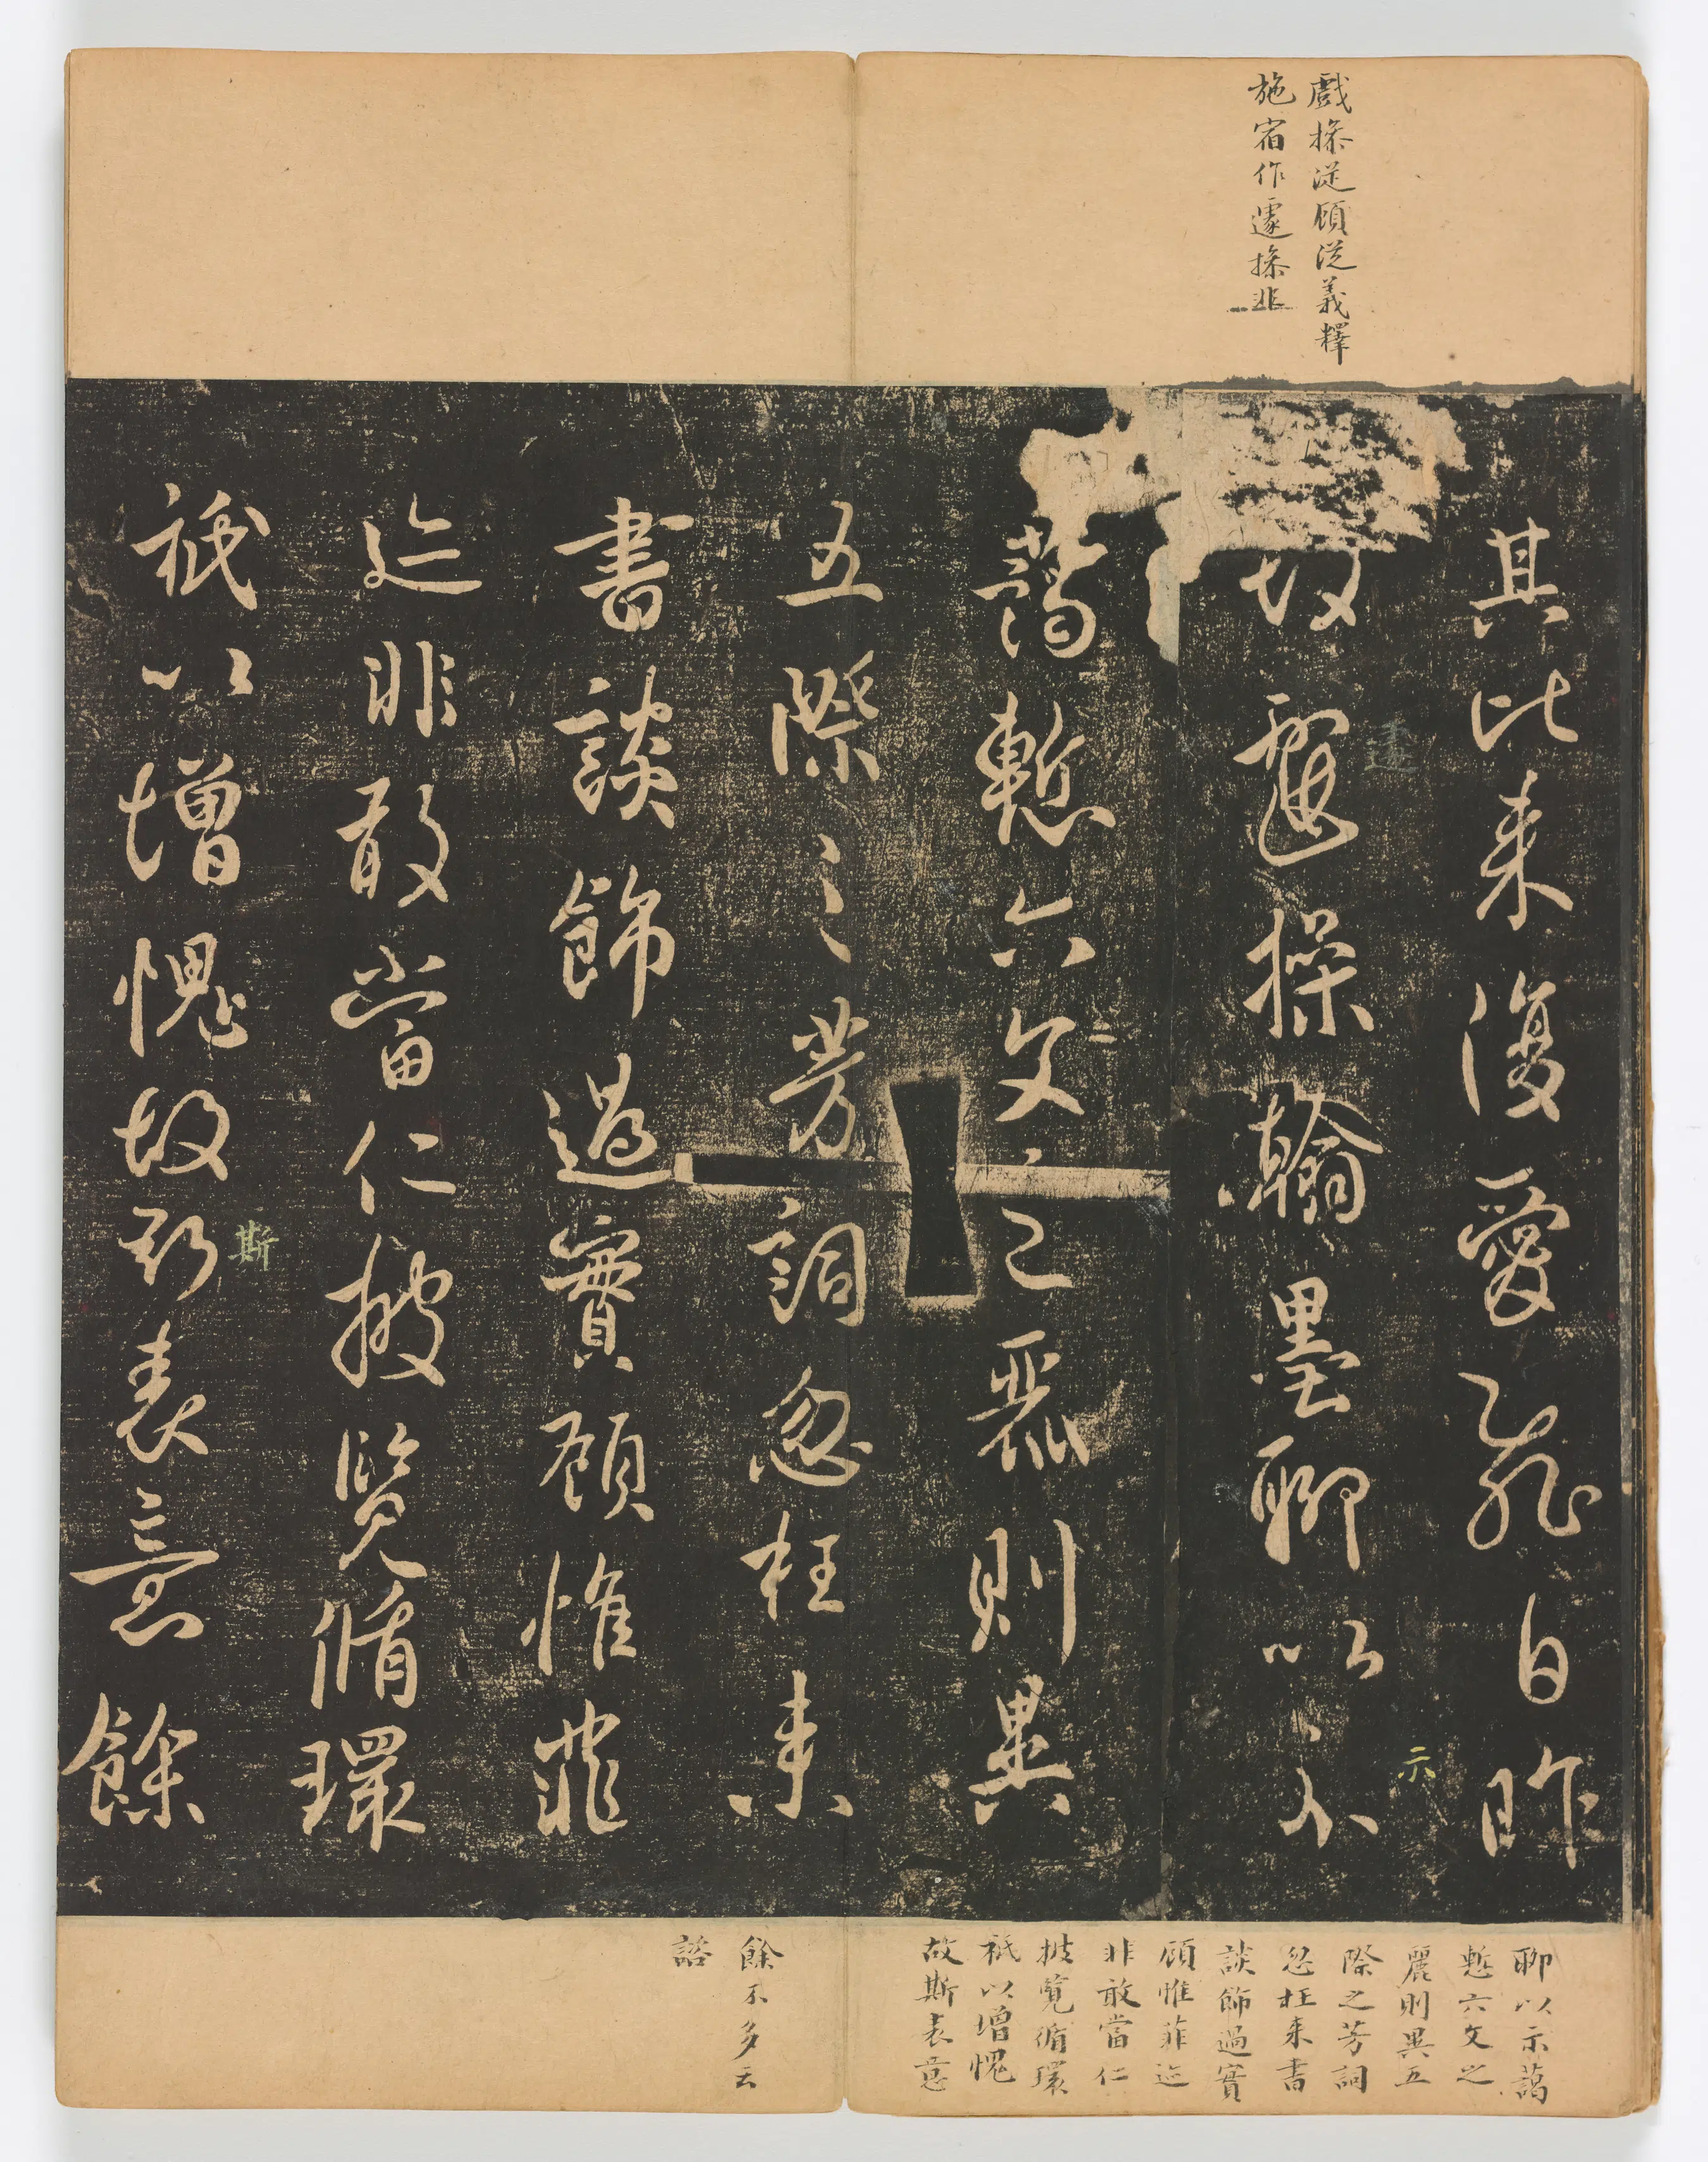 戲操從顧從義釋
施宿作遽操非
其比来復愛飛白昨
故戲操翰墨聊以示
遽
示
藹慙六文之麗則異
五際之芳詞忽枉来
書談飾過實顧惟菲
迹非敢當仁披覧循環
祇以增愧故斯表意餘
斯
聊以示藹
慙六文之
麗則異五
際之芳詞
忽枉来書
談飾過實
顧惟菲迹
非敢當仁
披覧循環
祇以增愧
故斯表意
餘不多云
諮